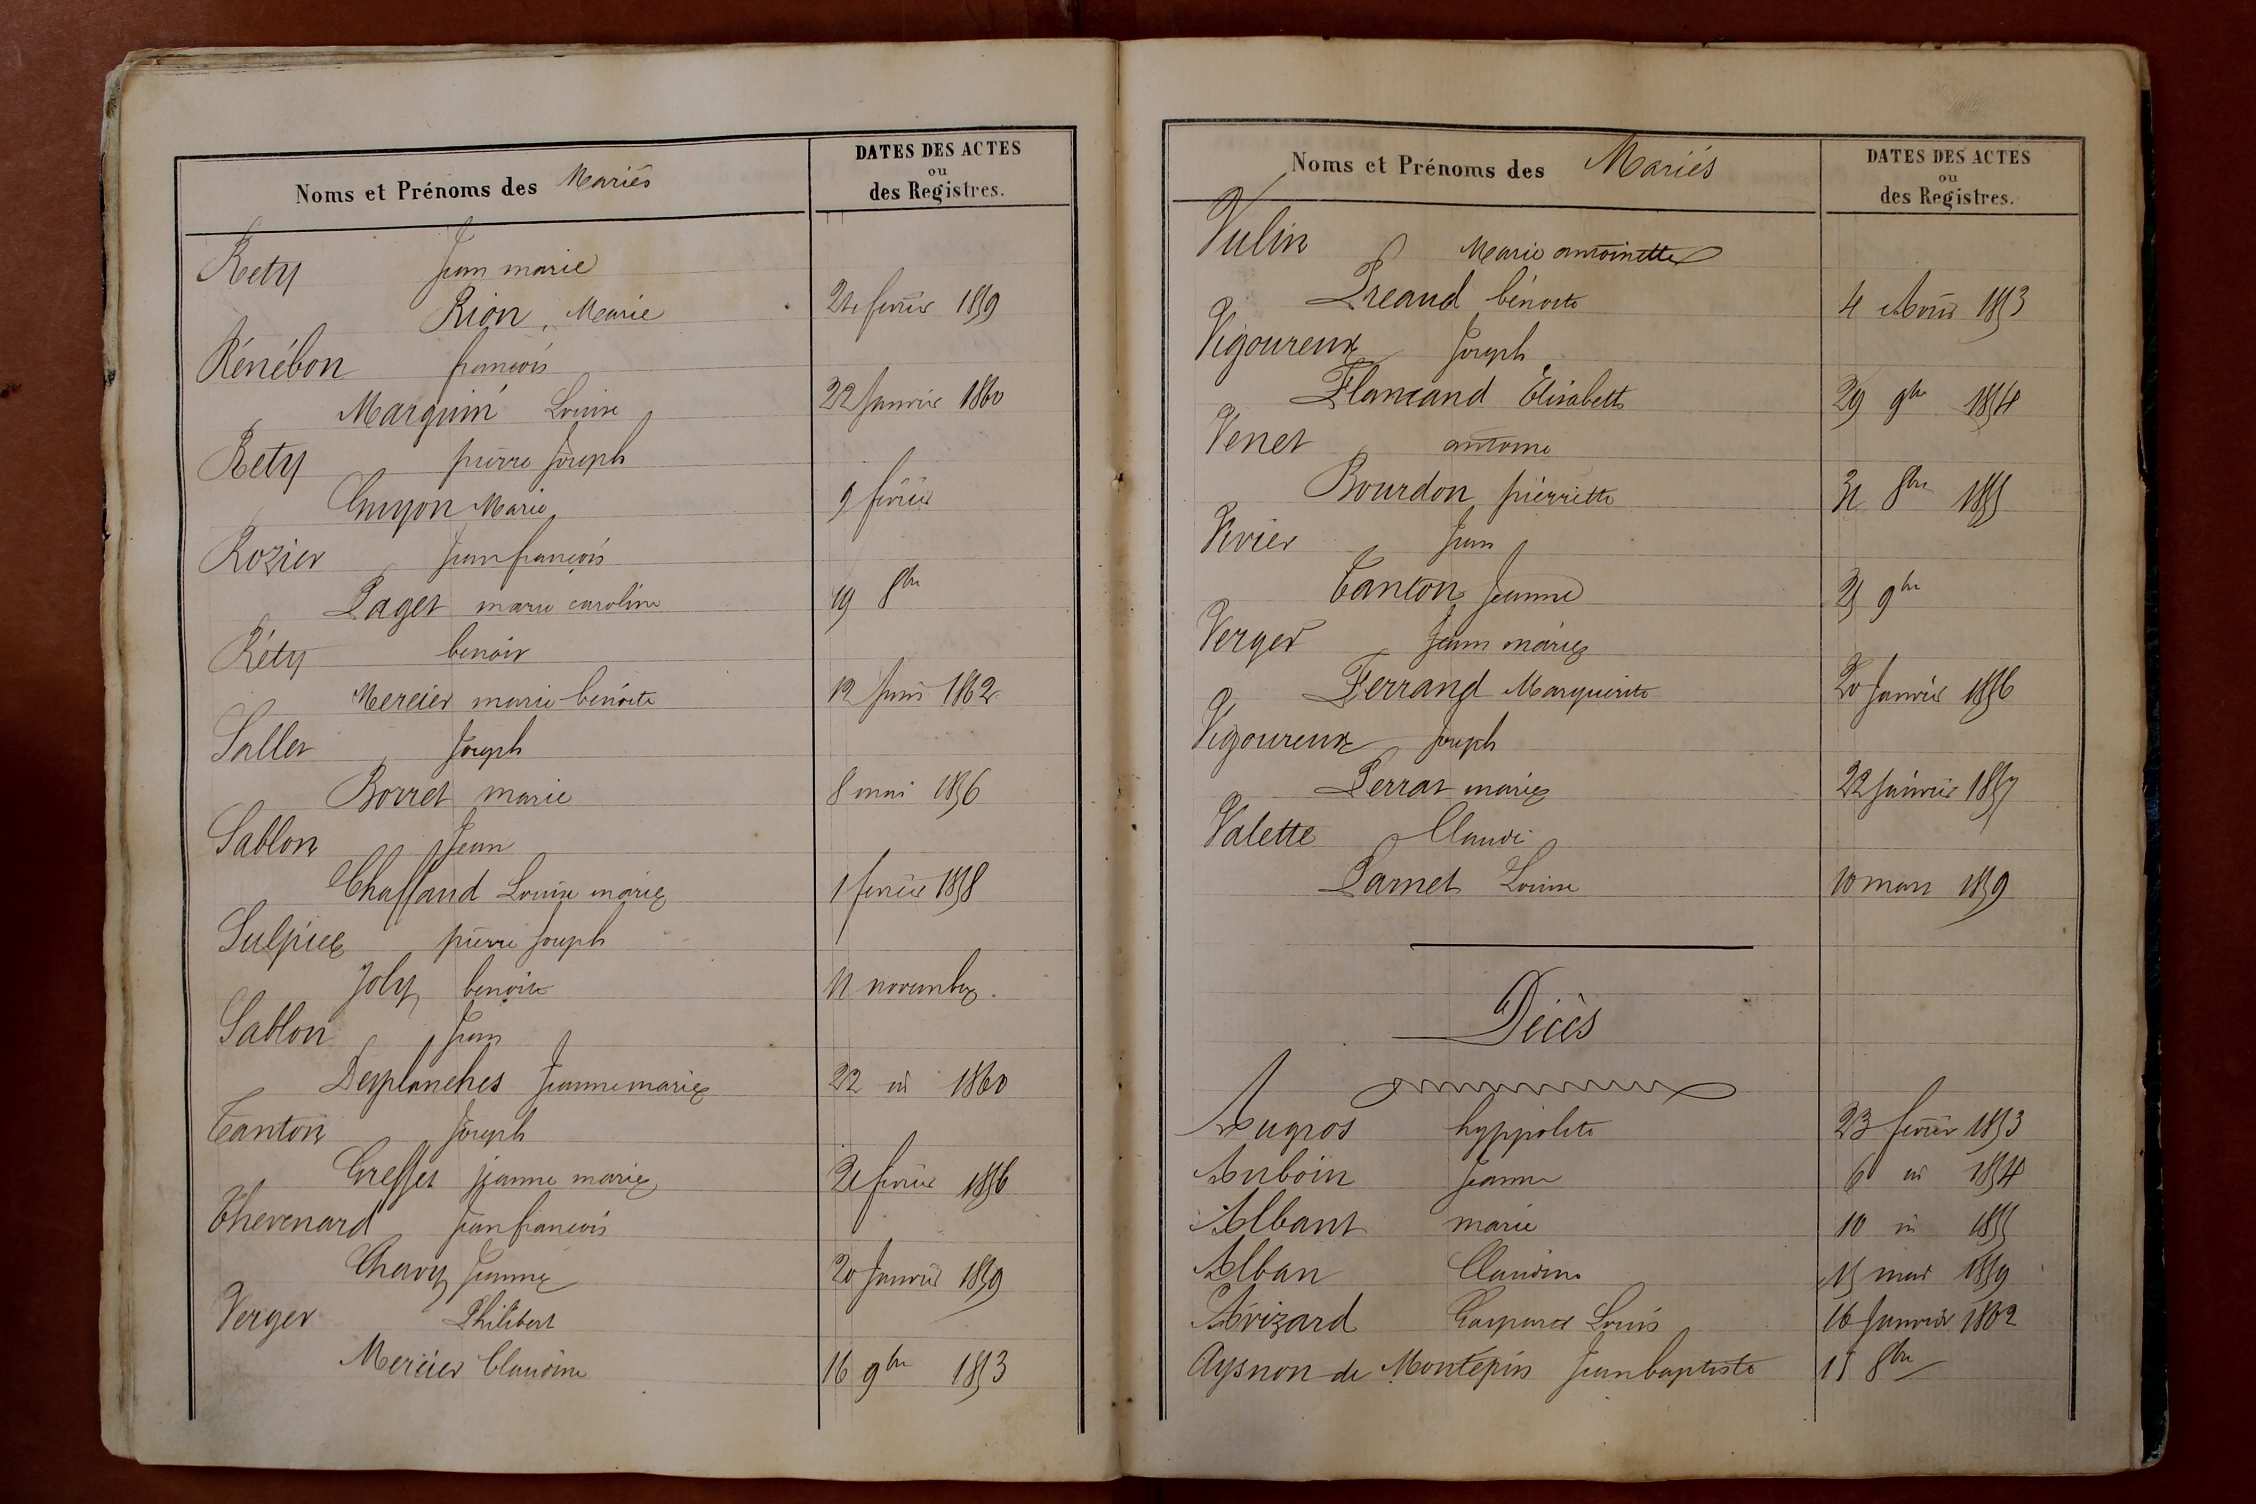 Noms et Prénoms des Mariés
DATES DES ACTES
ou
des Registres.
Rety Jean marie
Rion, Marie 24 fevrier 1859
Rénébon françois
Marguin Louise 22 Janvier 1860
Rety pierre Joseph
Guyon Marie 9 fevrier
Rozier Jean françois
Paget marie caroline 19 8bre
Réty benoit
Mercier marie benoite 12 Juin 1862
Sallet Joseph
Borret marie 8 mai 1856
Sablon Jean
Chaffaud Louise marie 1 fevrier 1858
Sulpice pierre Joseph
Joly benoite 11 novembre.
Sablon Jean
Desplanches Jeanne marie 22 id 1860
Tanton Joseph
Greffet jeanne marie fevrier 1856
Thevenard Jean francois
Chavy Jeanne 20 Janvier 1859
Verger Philibert
Mercier Claudine 16 9bre 1853
Noms et Prénoms des Mariés
DATES DES ACTES
ou
des Registres.
Vulin Marie antoinette
Preaud bénoite 4 1853
Vigoureux Joseph
Flamand Elisabeth 29 9bre 1854
Venet antoine
Bourdon pierrette 31 8bre 1855
Vivier Jean
Tanton Jeanne 25 9bre
Verger Jean marie
Ferrand Marguerite 20 Janvier 1856
Vigoureux Joseph
Perrat marie 22 Janvier 1857
Valette Claude
Parnet Louise 10 mars 1859
Décès
Augros hyppolite 23 fevrier 1853
Auboin Jeanne 6 id 1854
Albant marie 10 id 1855
Alban Claudine 15 mars 1859
Avizard Gaspard Louis 16 Janvier 1862
Aysnon de Montépin Jean baptiste 15 8bre